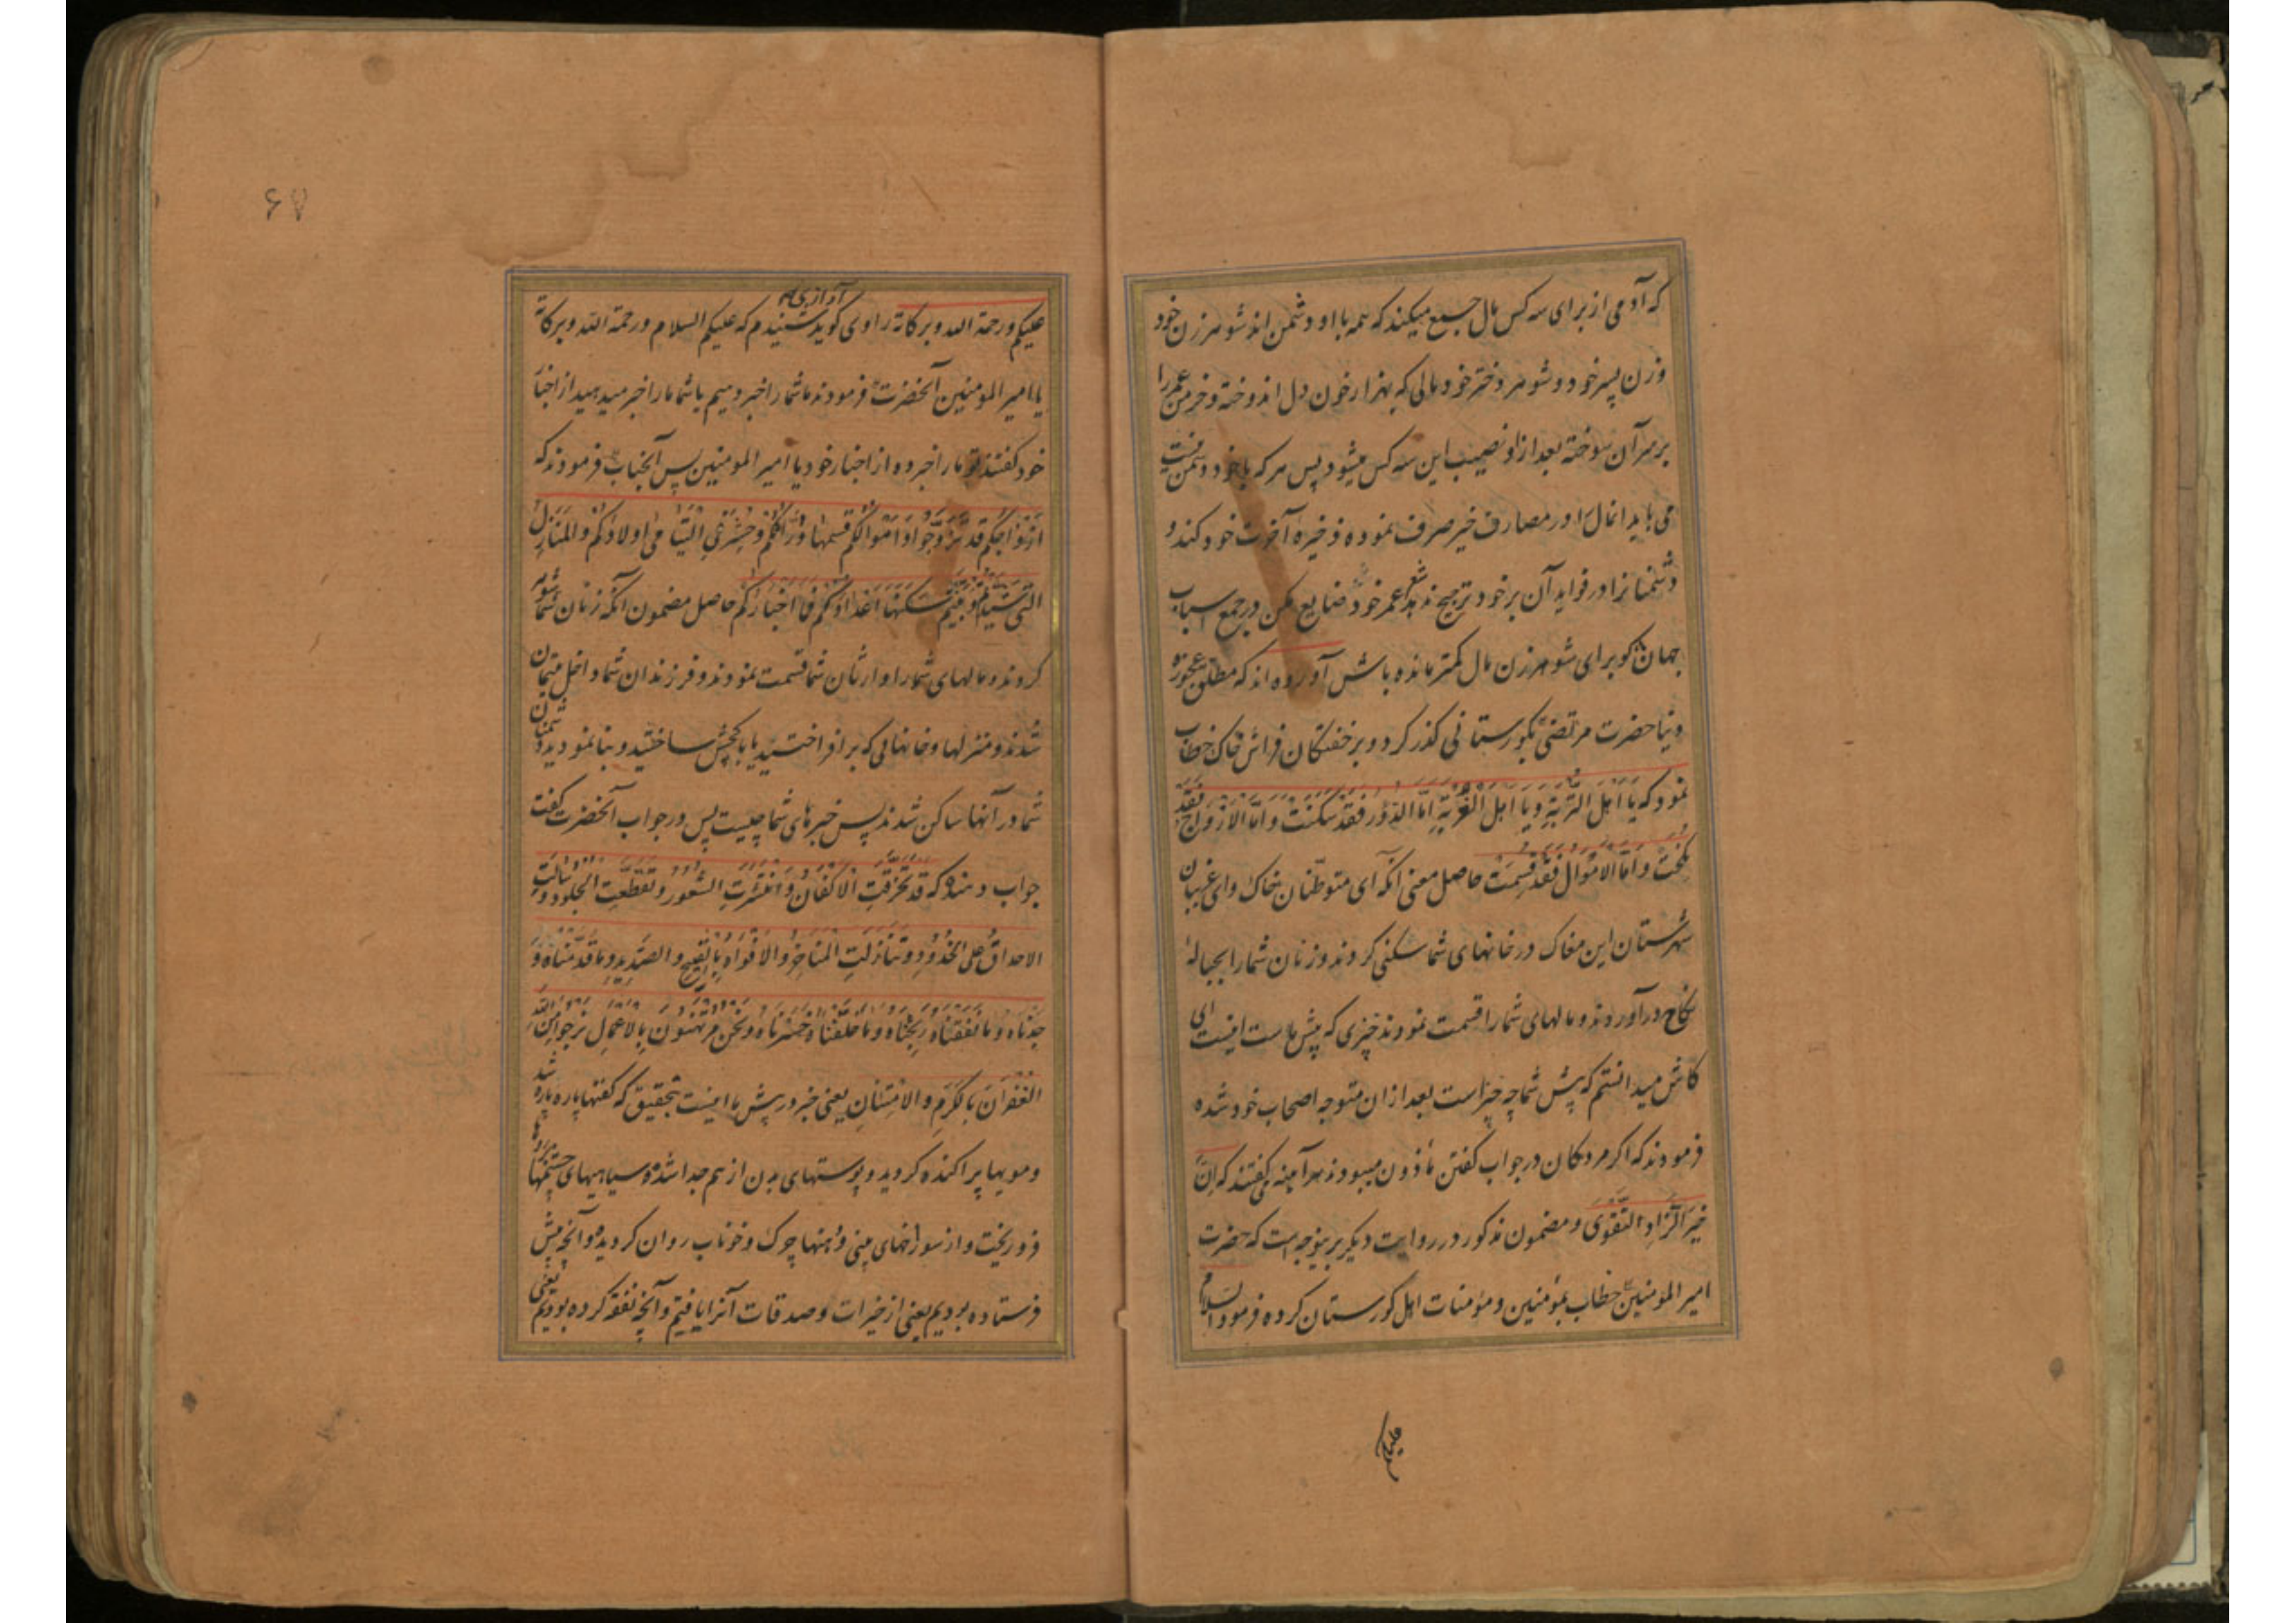 که آدمی از برای سه کس مال جمع میکند که همه با او دشمن اند شوهر زن خود
وزن پسر خود و شوهر دختر خود و مالی که بهزار خون دل اندوخته و خرمن عمر را
بر سر آن سوخته بعد از او نصیب این سه کس میشود پس هر که با خود دشمن نیست
می باید انمال را در مصارف خیر صرف نموده ذخیره آخرت خود کند و
دشمنانرا در فواید آن بر خود ترجیح ندهد شعر عمر خود ضایع مکن در جمع اسباب
جهان کو برای شوهر زن مال کمتر مانده باش آورده اند که مطلق عجوزه
دنیا حضرت مرتضی بگورستانی گذر کرد و بر خفتگان فراش خاک خطاب
نمود که یَا اَهلَ التُّربَةِ وَیَا اَهلَ الغُربَةِ اَمَّا الدُّورُ فَقَد سُکِنَت وَاَمَّا الاَزوَاجُ فَقَد
نُکِحَت وَاَمَّا الاَموَالُ فَقَد قُسِمَت حاصل معنی آنکه ای متوطّنان خاک وای غریبان
شهرستان این مغاک در خانهای شما سکنی کردند و زنان شما را بحبالهٔ
نکاح در آوردند و مالهای شما را قسمت نمودند چیزی که پیش ماست اینست ای
کاش میدانستم که پیش شما چه چیز است بعد از ان متوجه اصحاب خود شده
فرمودند که اگر مردکان در جواب گفتن مأذون میبودند هر آینه میگفتند که اِنَّ
خَیرَ الزَّادِ التَّقوَی و مضمون مذکور در روایت دیگر برینوجه است که حضرت
امیر المؤمنین خطاب بمؤمنین و مؤمنات اهل گورستان کرده فرمود السلام
علیکم
۶۷
آوازی که
علیکم ورحمة الله وبرکاته راوی گوید شنیدم که علیکم السلام ورحمة الله وبرکاته
یا امیر المومنین آنحضرت فرمودند ما شما را خبر دهیم یا شما ما را خبر میدهید از اخبار
خود گفتند تو ما را خبر ده از اخبار خود یا امیر المومنین پس آنجناب فرمودند که
اَزوَاجُکُم قَد تَزَوَّجُوا وَاَموَالُکُم قَسمَهَا وُرَّاثُکُم وَحُشِرَ فِی الیَتَامَی اَولَادُکُم وَالمَنَازِلُ
الَّتِی شَیَّدتُم وَبَنَیتُم سَکَنَهَا اَعدَاؤُکُم فَمَا اَخبَارُکُم حاصل مضمون آنکه زنان شما شوهر
کردند و مالهای شما را وارثان شما قسمت نمودند و فرزندان شما داخل یتیمان
شدند و منزلها و خانهایی که بر افراختید یا با گچش ساختید و بنا نمودید دشمنان
شما در آنها ساکن شدند پس خبرهای شما چیست پس در جواب آنحضرت گفت
جواب دهنده که قَد تَخَرَّقَتِ الاَکفَانُ وَانتَشَرَتِ الشُّعُورُ وَتَقَطَّعَتِ الجُلُودُ وَسَالَتِ
الاَحدَاقُ عَلَی الخُدُودِ وَتَنَازَلَتِ المَنَاخِرُ وَالاَفوَاهُ بِالقَیحِ وَالصَّدِیدِ وَمَا قَدَّمنَاهُ وَ
جَدنَاهُ وَمَا نَفَقنَاهُ رَبِحنَاهُ وَمَا خَلَّفنَاهُ خَسِرنَاهُ وَنَحنُ مُرتَهَنُونَ بِالاَعمَالِ نَرجُو مِنَ اللّٰهِ
الغُفرَانَ بِالکَرَمِ وَالاِمتِنَانِ یعنی خبر در پیش ما اینست بتحقیق که کفنها پاره پاره شد
و مویها پراکنده گردید و پوستهای بدن از هم جدا شده سیاهیهای چشمها بر روها
فرو ریخت و از سوراخهای بینی و دهنها چرک و خوناب روان گردیده و آنچه پیش
فرستاده بودیم یعنی از خیرات و صدقات آنرا یافتیم و آنچه نفقه کرده بودیم یعنی